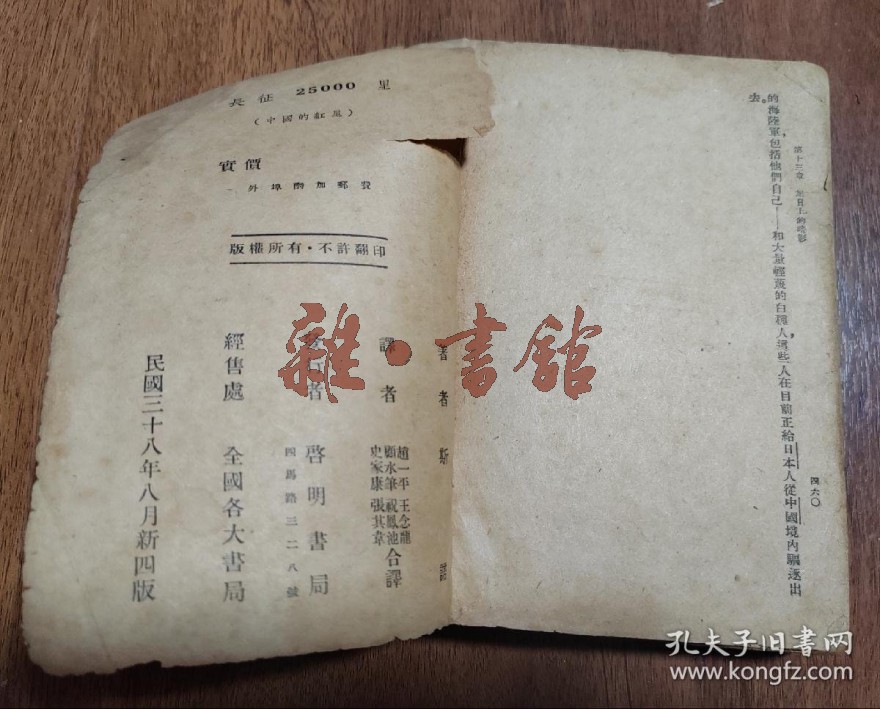 長征 25000 里
（中國的紅星）
實價
外埠酌加郵費
版權所有·不許翻印
著者 斯 諾
譯者 趙一平 王念龍 顧水筆 祝鳳池 史家康 張其韋 合譯
啓明書局
四馬路三二八號
經售處 全國各大書局
民國三十八年八月新四版
第十三章 旭日上的暗影
四六〇
的海陸軍，包括他們自己——和大量輕蔑的白種人，這些人在目前正給日本人從中國境內驅逐出
去。
雜·書館
孔夫子旧书网
www.kongfz.com